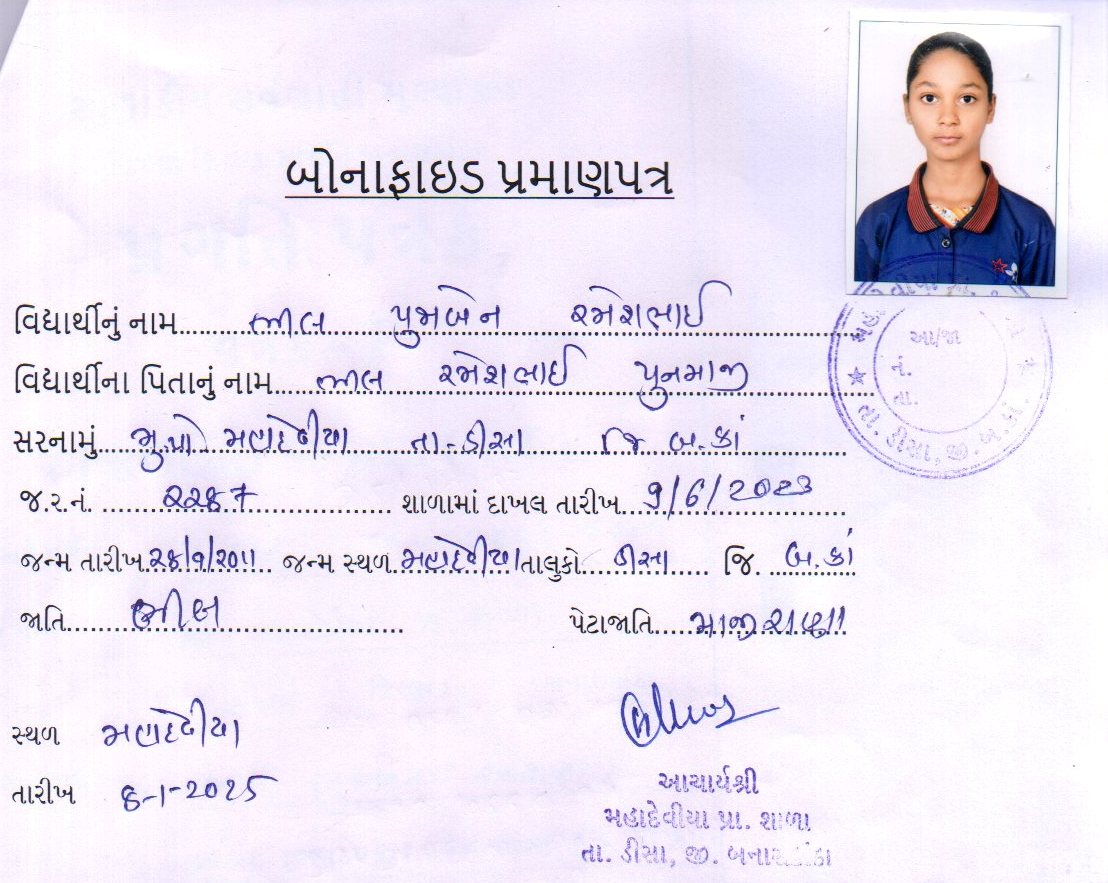 બોનાફાઇડ પ્રમાણપત્ર
વિદ્યાર્થીનું નામ ભીલ પુનમબેન રમેશભાઈ
વિદ્યાર્થીના પિતાનું નામ ભીલ રમેશભાઈ પુનમાજી
સરનામું મુ.પો મહાદેવીયા તા-ડીસા જિ બ.કાં
જ.ર.નં. ૨૨૪૭ શાળામાં દાખલ તારીખ 9/6/2023
જન્મ તારીખ જન્મ સ્થળ મહાદેવીયા તાલુકો ડીસા જિ. બ.કાં
જાતિ ભીલ પેટાજાતિ
આ/જા
નં.
તા.
તા. ડીસા, જી. બ.કાં.
સ્થળ મહાદેવીયા
તારીખ 8-1-2025
આચાર્યશ્રી
મહાદેવીયા પ્રા. શાળા
તા. ડીસા, જી. બનાસકાંઠા